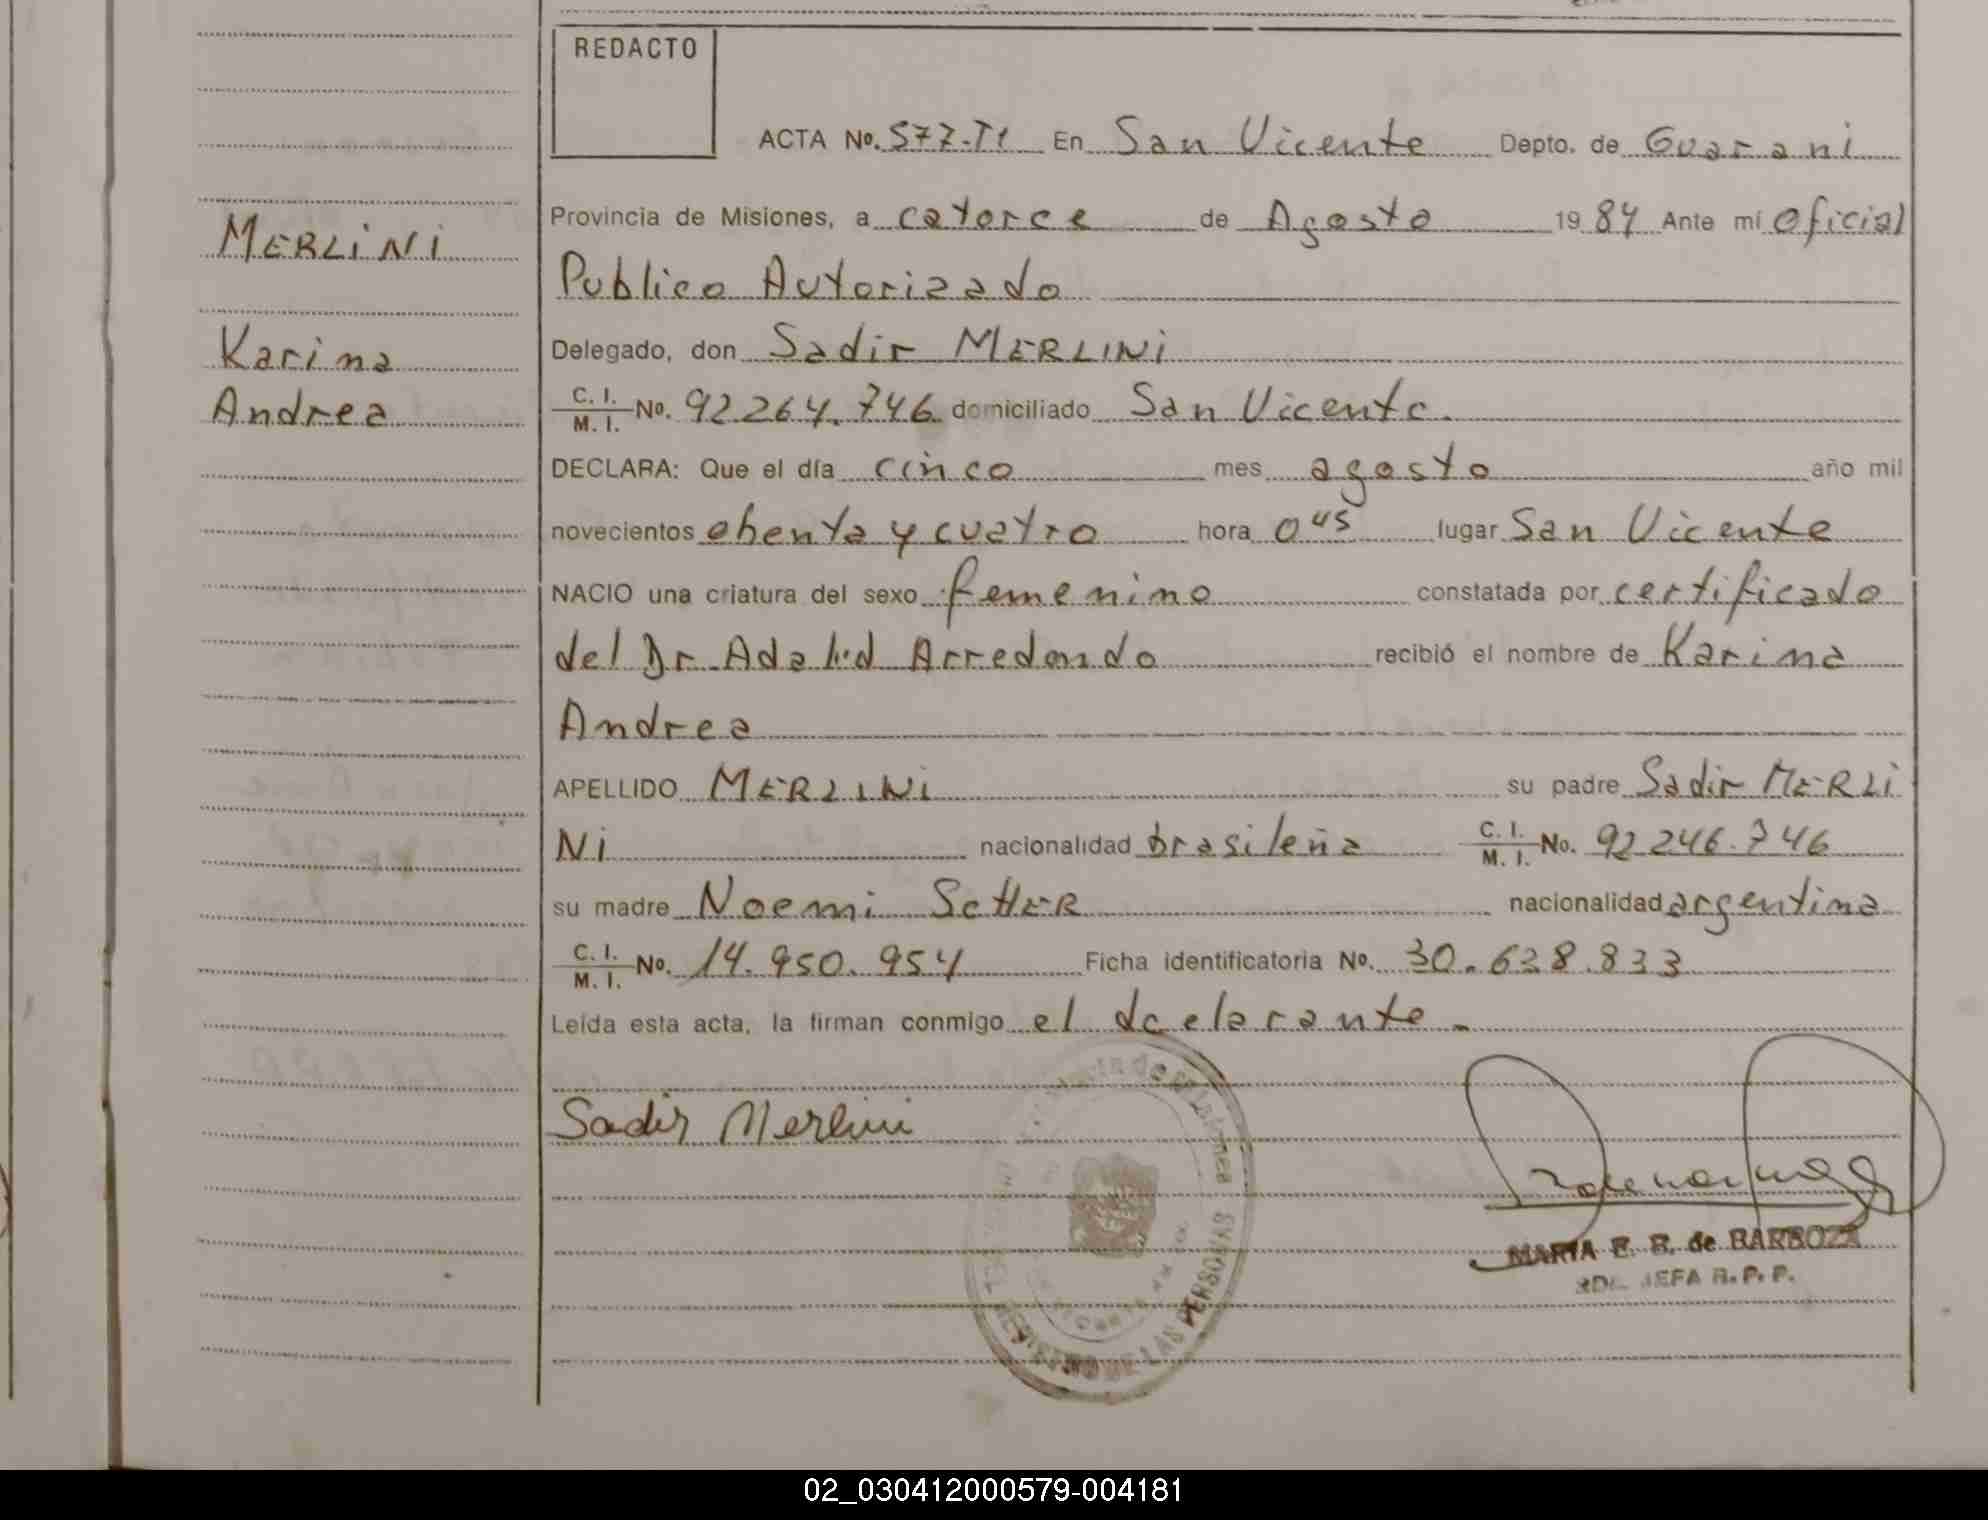 REDACTO
ACTA No. 577-T1 En San Vicente Depto. de Guarani
MERLINI
Provincia de Misiones, a catorce de Agosto 1984 Ante mí Oficial
Publico Autorizado
Karina
Delegado, don Sadir MERLINI
Andrea
C. I. M. I. No. 92.264.746 domiciliado San Vicente.
DECLARA: Que el día cinco mes agosto año mil
novecientos ohenta y cuatro hora 0 45 lugar San Vicente
NACIO una criatura del sexo femenino constatada por certificado
del Dr Adalid Arredondo recibió el nombre de Karina
Andrea
APELLIDO MERLINI su padre Sadir MERLI
NI nacionalidad brasileña C. I. M. I. No. 92.246.746
su madre Noemi ScHER nacionalidad argentina
C. I. M. I. No. 14.950.954 Ficha identificatoria No. 30.638.833
Leída esta acta, la firman conmigo el dcelarante.
Sadir Merlini
DE LAS PERSONAS
MARIA E. B. de BARBOZA
JEFA R. P. P.
02_030412000579-004181